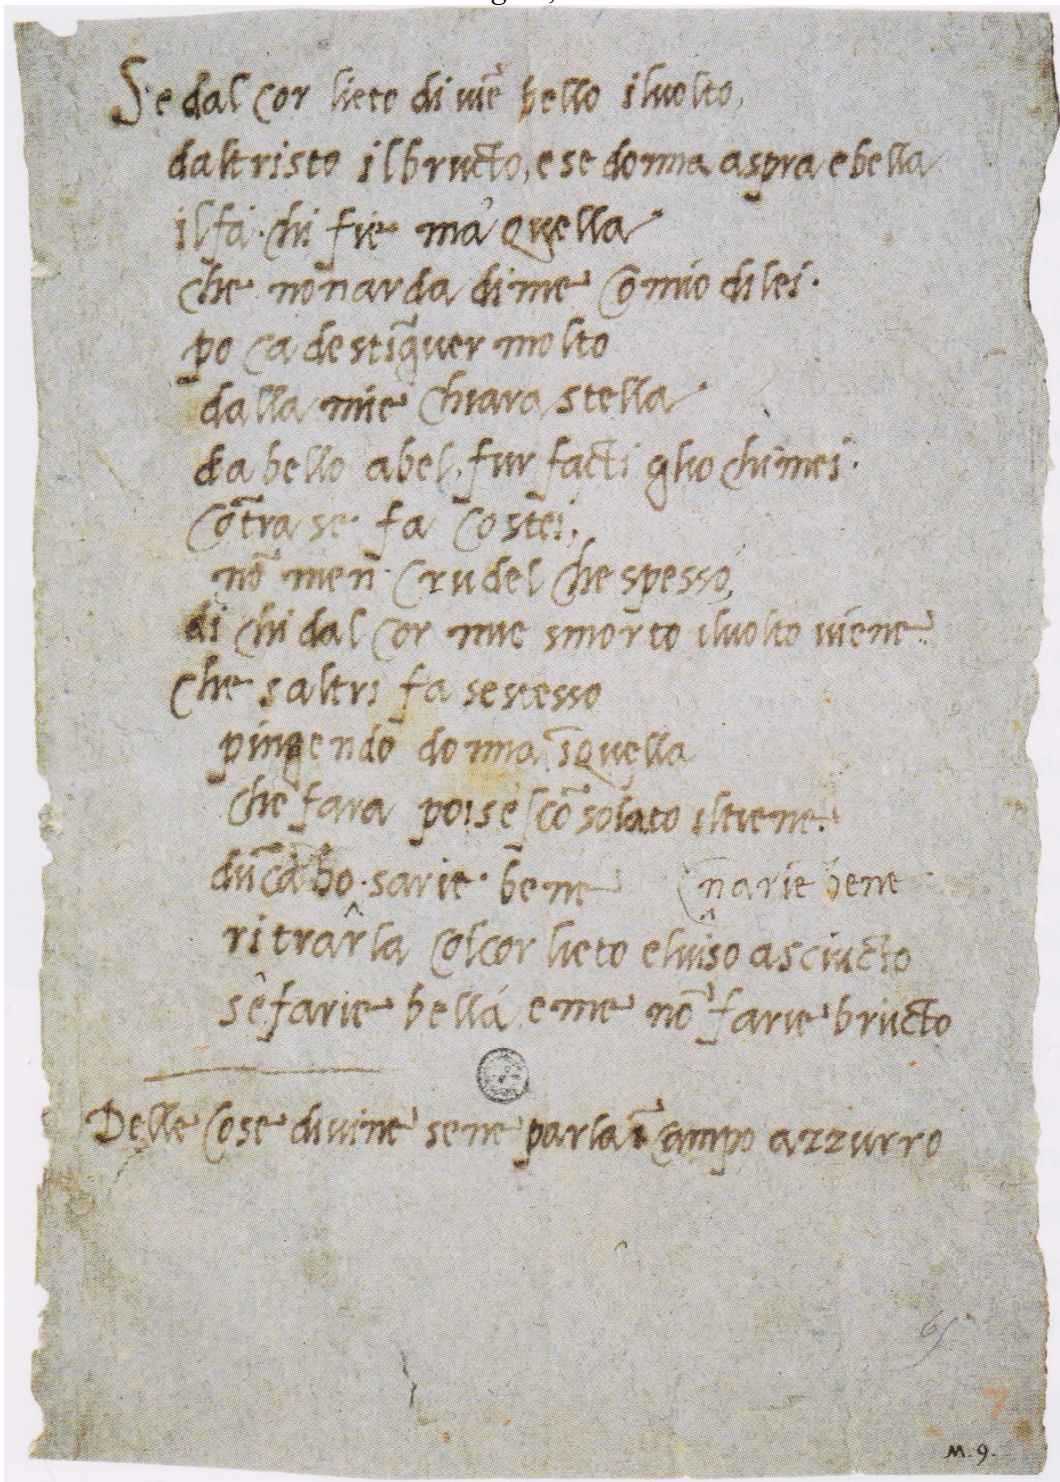 Se dal cor lieto diviē bello ilvolto,
daltristo ilbructo, e se donna aspra e bella
ilfa· chi fie ma' quella
che nōn arda di me com'io di lei·
po c'a destīguer molto
dalla mie chiara stella
da bello a bel· fur facti gliochi mei·
cōtra se fa costei·
nō men crudel che spesso,
di chi dal cor mie smorto ilvolto viene·
che s altri fa sestesso
pingendo donna ī quella
che fara poi se scōsolato il tiene·
dūc'ābo· sarie· bene narie bene
ritrarla colcor lieto elviso asciucto
sē farie bella e me nō farie bructo
Delle cose divine sene parla ī campo azzurro
65
M.9.